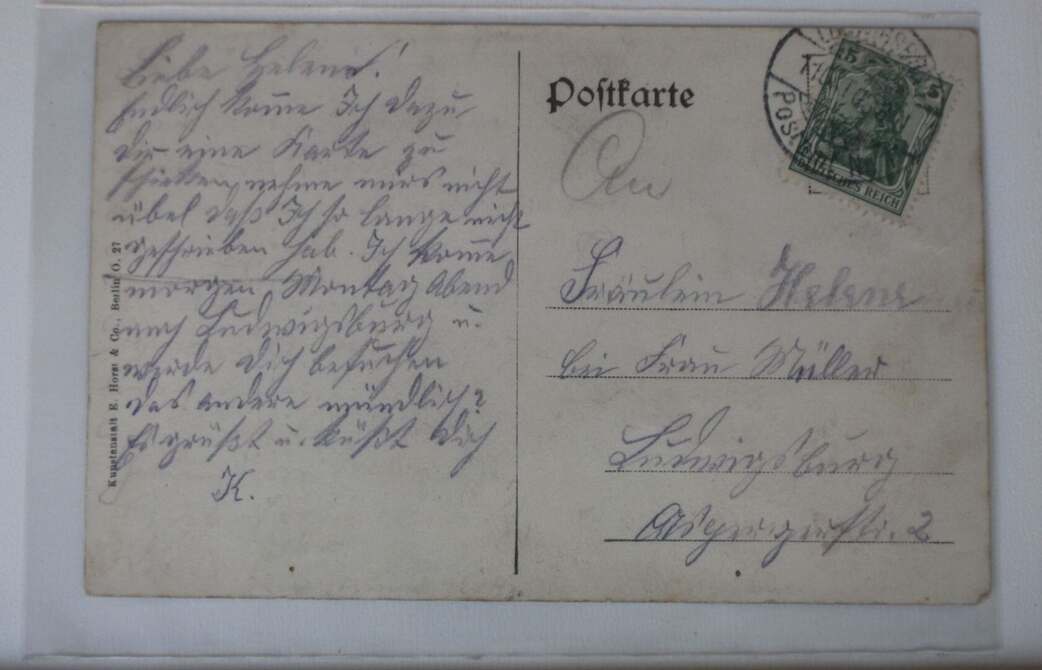 Liebe Helene!
Endlich komme Ich dazu
dir eine Karte zu
schicken, nehme mirs nicht
übel daß Ich so lange nicht
geschrieben hab. Ich komme
morgen Montag Abend
nach Ludwigsburg u.
werde dich besuchen
das andere mündlich?
Es grüßt u. küßt dich
K.
Kunstanstalt E. Horst & Co., Berlin O. 27
Postkarte
5 5
DEUTSCHES REICH
An
Fräulein Helene
bei Frau Müller
Ludwigsburg
Aspergerstr. 2